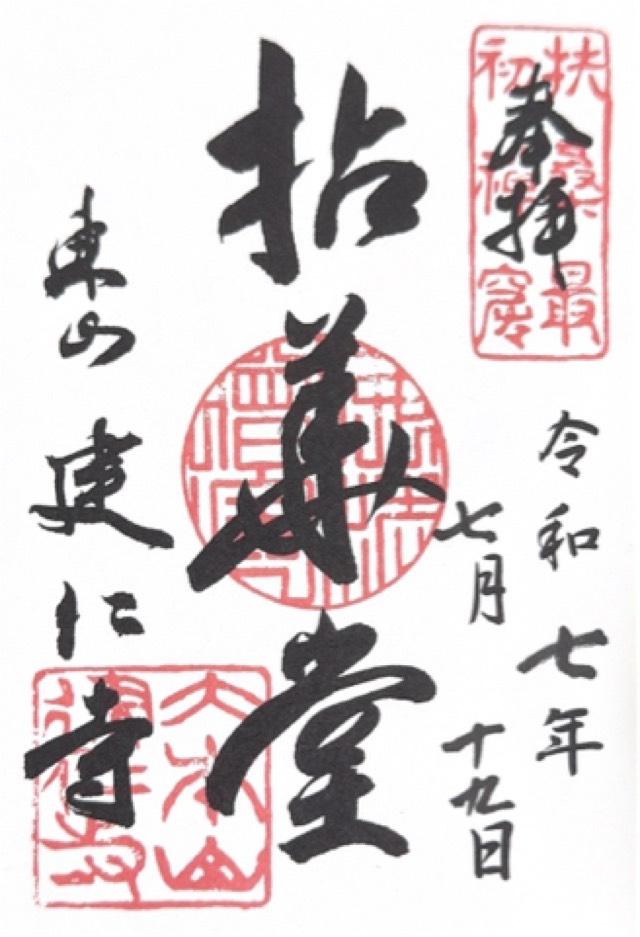 奉拝
扶桑最
初禅窟
令和七年
七月十九日
拈華堂
東山建仁寺
大本山
建仁寺